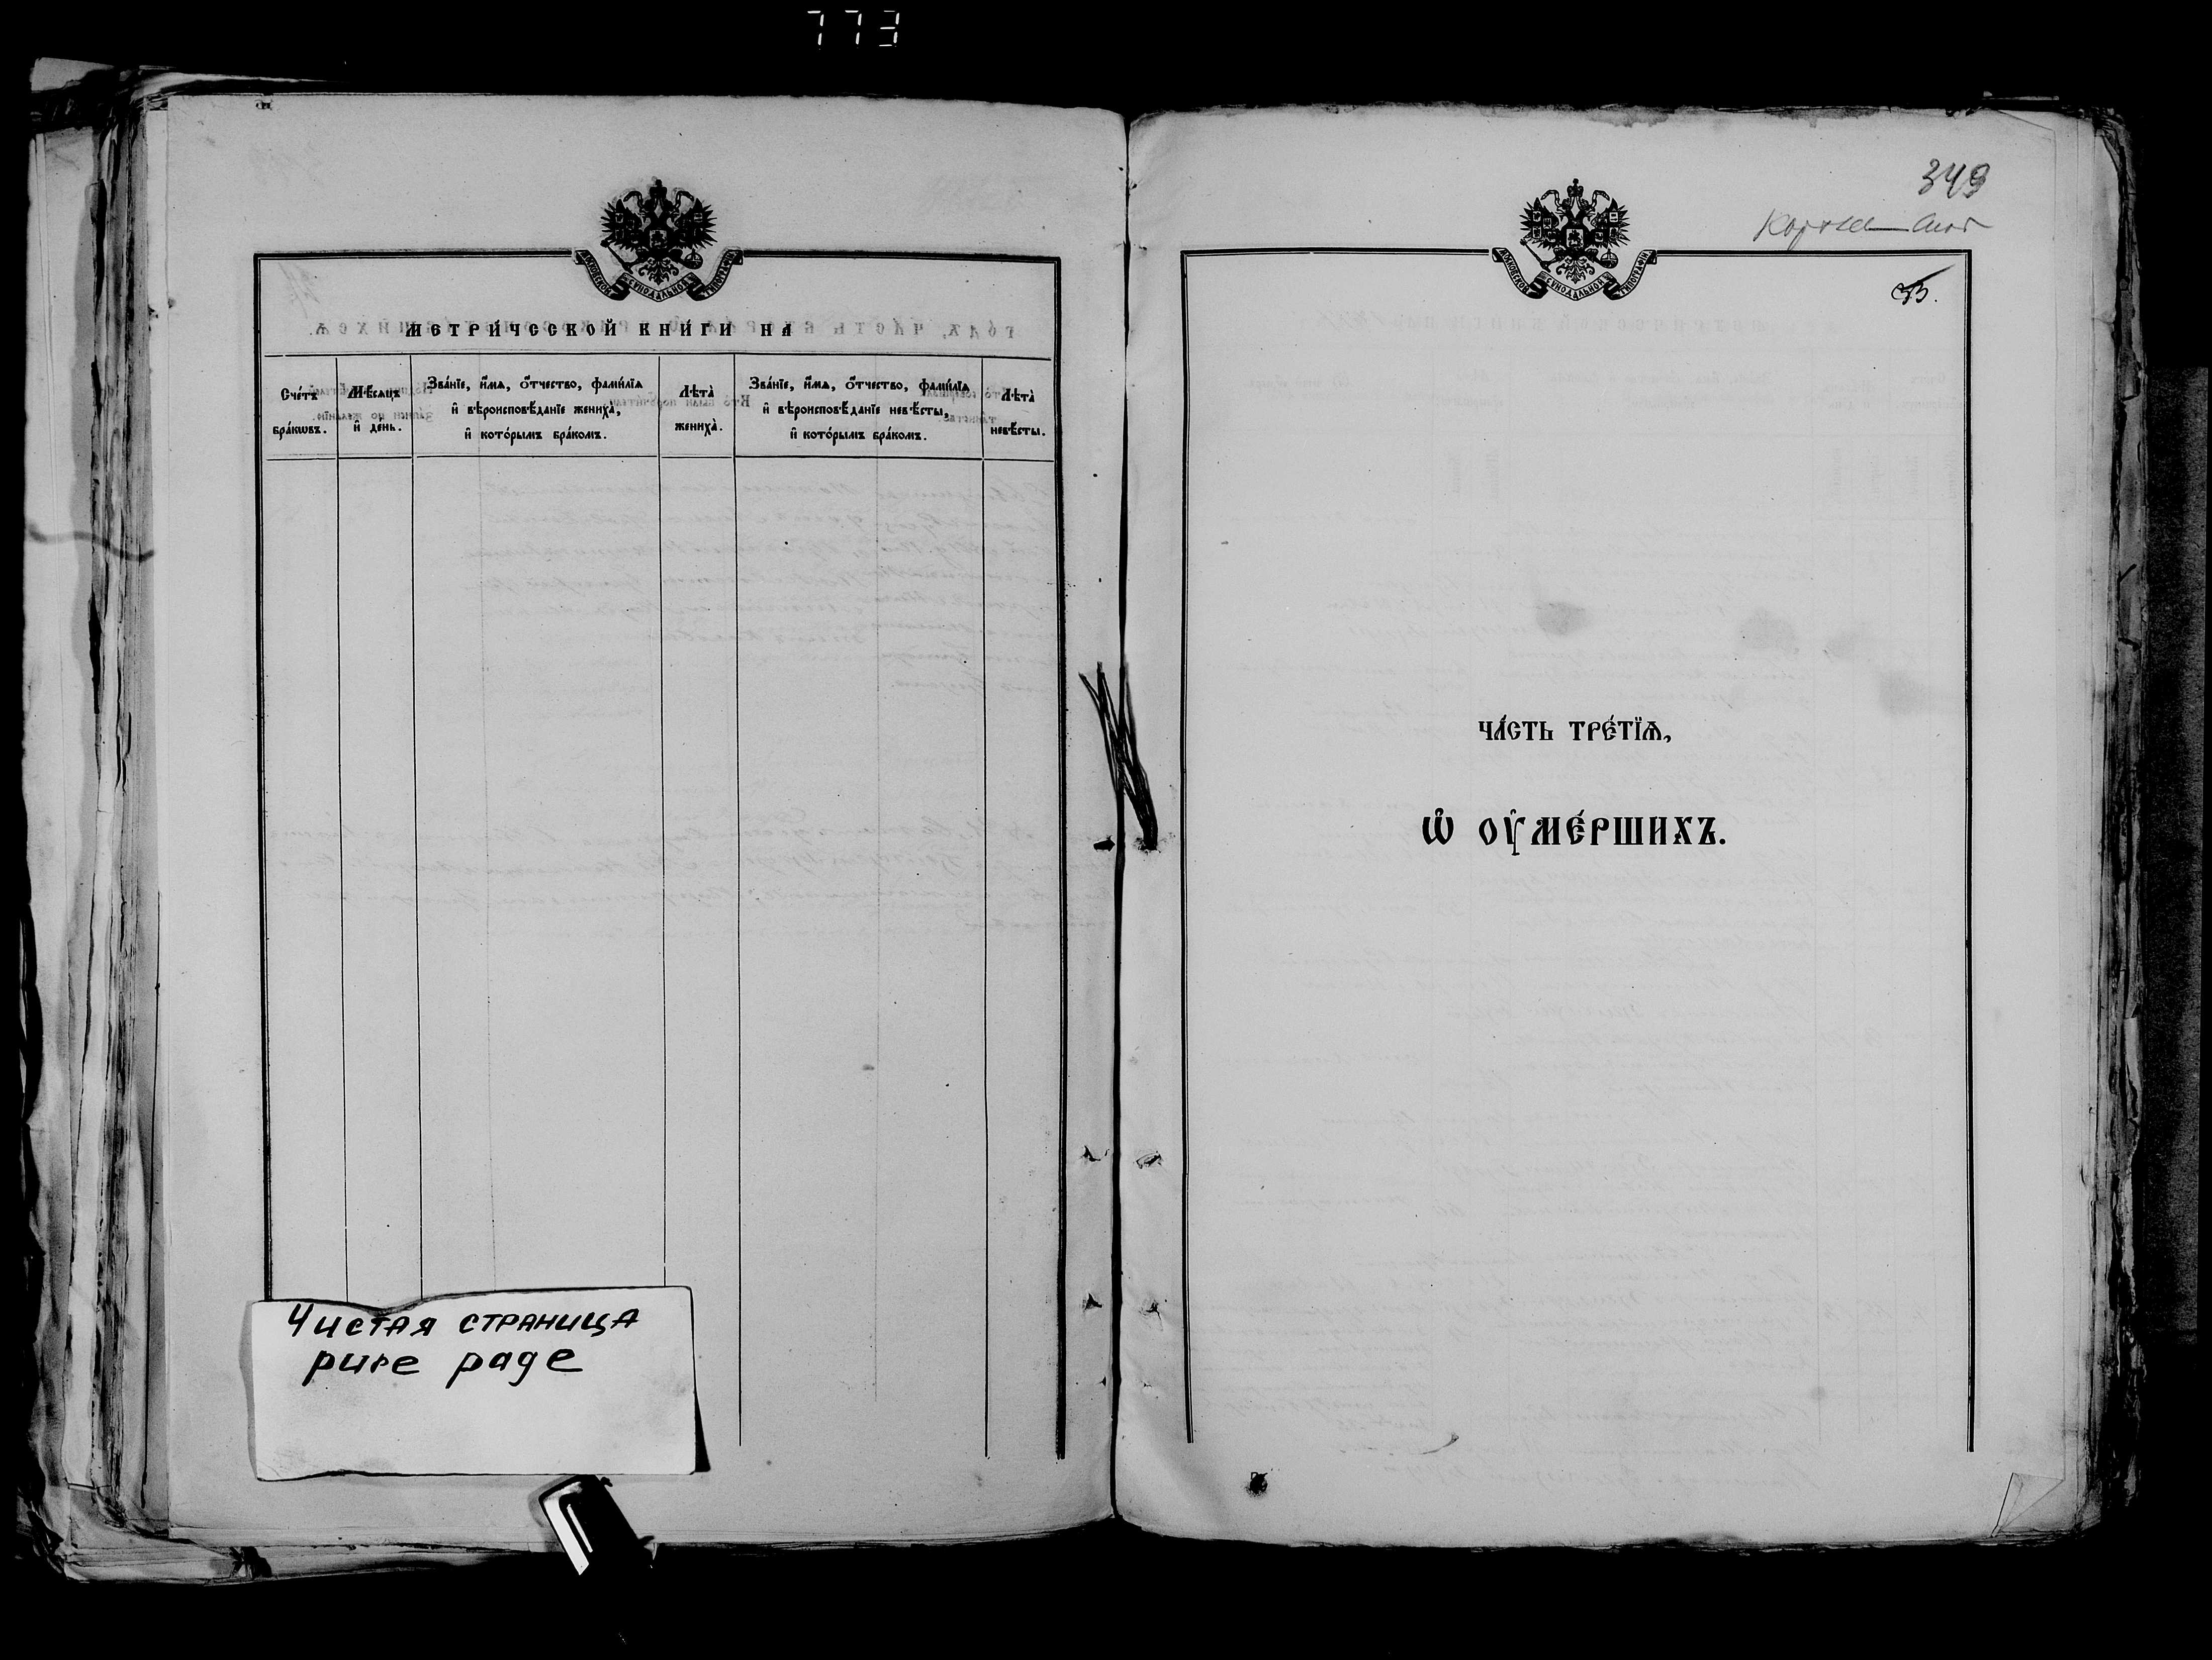 773
МОСКОВСКОЙ СѴНОДАЛЬНОЙ ТИПОГРАФІИ
МЕТРИ́ЧЕСКОЙ КНИ́ГИ НА
Сче́тъ бра́кѡвъ.
Мѣ́сяцъ и҆ де́нь.
Зва́нїе, и҆́мѧ, ѻ҆́тчество, фами́лїѧ
и҆ вѣроисповѣ́данїе жениха̀,
и҆ кото́рымъ бра́комъ.
Лѣта̀ жениха̀.
Зва́нїе, и҆́мѧ, ѻ҆́тчество, фами́лїѧ
и҆ вѣроисповѣ́данїе невѣ́сты,
и҆ кото́рымъ бра́комъ.
Лѣта̀ невѣ́сты.
Чистая страница
pure page
349
МОСКОВСКОЙ СѴНОДАЛЬНОЙ ТИПОГРАФІИ
ЧА́СТЬ ТРЕ́ТЇѦ,
Ѽ ОУ҆МЕ́РШИХЪ.